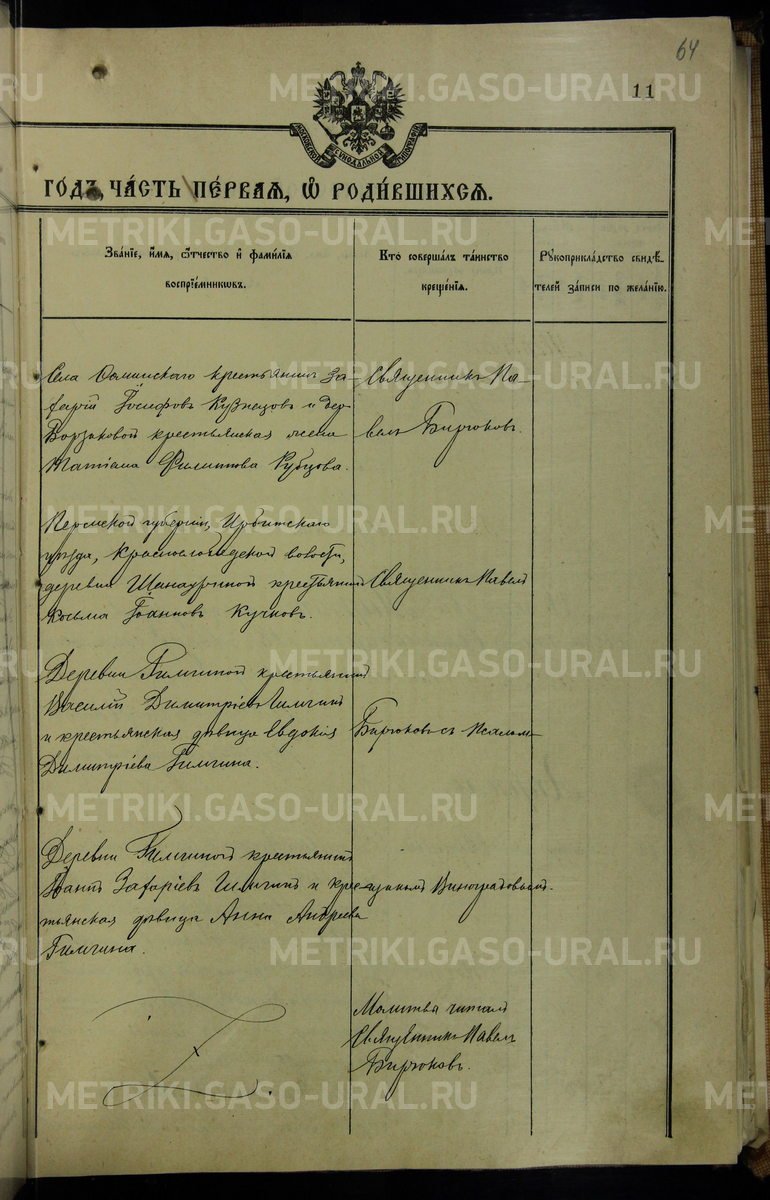 64
11
МОСКОВСКОЙ СѴНОДАЛЬНОЙ ТИПОГРАФІИ
ГОДЪ, ЧАСТЬ ПЕРВАЯ, Ѿ РОДИВШИХСЯ.
Званіе, имя, отчество и фамилія
воспріемниковъ.
Кто совершалъ таинство
крещенія.
Рукоприкладство свидѣ-
телей записи по желанію.
крестьянинъ За-
харій Іосифовъ Кузнецовъ и дер.
крестьянская жена
Татіана Филиппова Рубцова.
Священникъ Па-
велъ Бирюковъ.
Пермской губерніи, Ирбитскаго
уѣзда, Краснослободской волости,
деревни крестьянинъ
Косьма Іоанновъ Кучковъ.
Священникъ Павелъ
Деревни крестьянинъ
Василій Димитріевъ
и крестьянская дѣвица Евдокія
Димитріева
Бирюковъ съ псалом-
Деревни крестьянинъ
Іоаннъ Захаріевъ и кре-
стьянская дѣвица Анна Андреева
щикомъ Виноградовымъ.
Молитва читалъ
Священникъ Павелъ
Бирюковъ.
METRIKI.GASO-URAL.RU